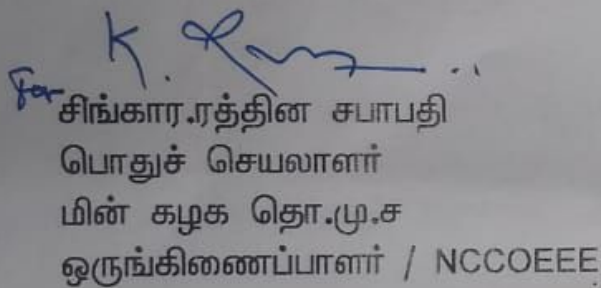 For
சிங்கார.ரத்தின சபாபதி
பொதுச் செயலாளர்
மின் கழக தொ.மு.ச
ஒருங்கிணைப்பாளர் / NCCOEEE